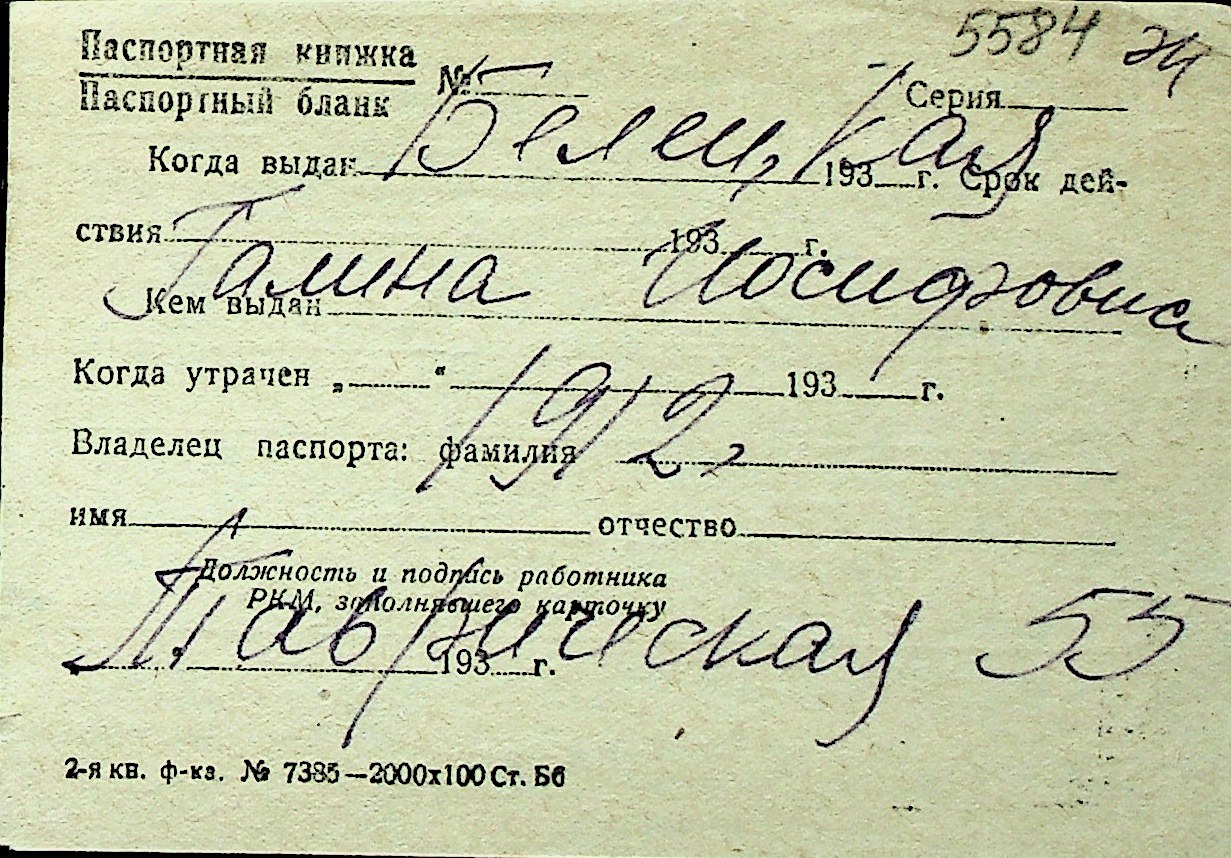 5584 ж
Паспортная книжка
Паспортный бланк
№ Серия
Белецкая
Когда выдан 193 г. Срок дей-
ствия 193 г.
Галина Иосифовна
Кем выдан
Когда утрачен „ “ 193 г.
1912
Владелец паспорта: фамилия
имя отчество
Должность и подпись работника
РКМ, заполнявшего карточку
Таврическая 55
193 г.
2-я кв. ф-ка. № 7385—2000х100 Ст. Бб